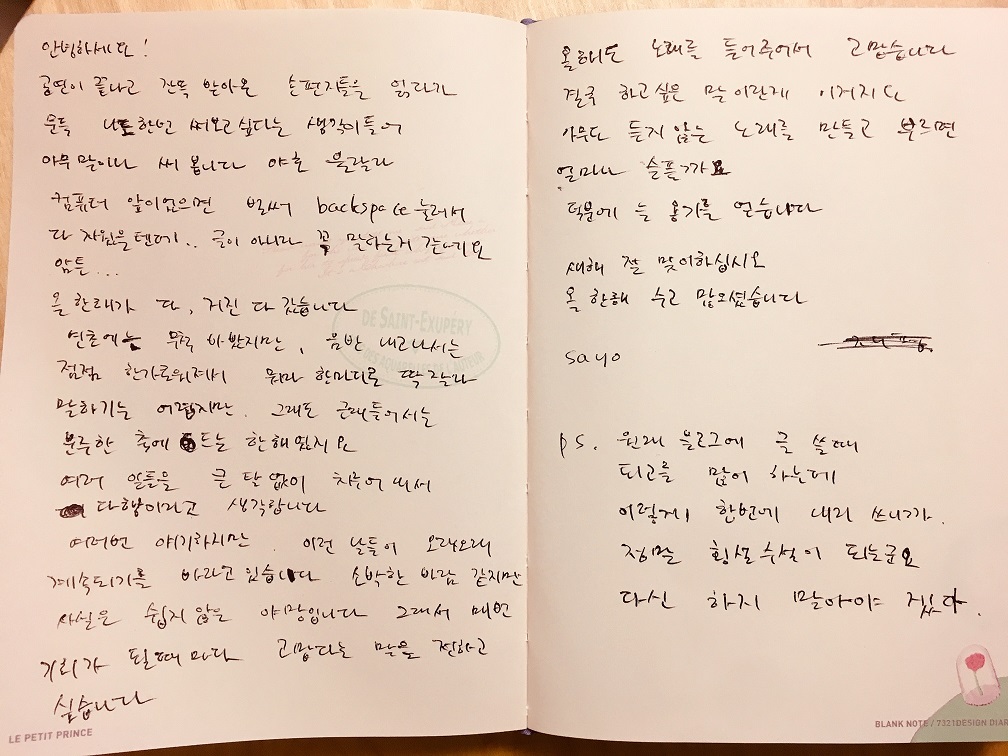 안녕하세요!
공연이 끝나고 잔뜩 받아온 손편지들을 읽다가
문득 나도 한번 써보고 싶다는 생각이 들어
아무 말이나 써 봅니다 야호 울랄라
컴퓨터 앞이었으면 벌써 backspace 눌러서
다 지웠을텐데.. 글이 아니라 꼭 말하는거 같네요
암튼...
올 한해가 다, 거진 다 갔습니다
연초에는 무척 바빴지만, 음반 내고나서는
점점 한가로워져서 뭐라 한마디로 딱 잘라
말하기는 어렵지만. 그래도 근래들어서는
분주한 축에 드는 한해였지요
여러 일들을 큰 탈 없이 치루어내서
다행이라고 생각합니다
여러번 얘기하지만. 이런 날들이 오래오래
계속되기를 바라고 있습니다 소박한 바람 같지만
사실은 쉽지 않은 야망입니다 그래서 매번
기회가 될때마다 고맙다는 말을 전하고
싶습니다
LE PETIT PRINCE
DE SAINT-EXUPÉRY
올해도 노래를 들어주어서 고맙습니다
결국 하고싶은 말이란게 이거지요
아무도 듣지 않는 노래를 만들고 부르면
얼마나 슬플까요
덕분에 늘 용기를 얻습니다
새해 잘 맞이하십시오
올 한해 수고 많으셨습니다
sayo
ps. 원래 블로그에 글 쓸때
퇴고를 많이 하는데
이렇게 한번에 내리 쓰니까.
정말 횡설수설이 되는군요
다신 하지 말아야 겠다.
BLANK NOTE / 7321DESIGN DIAR